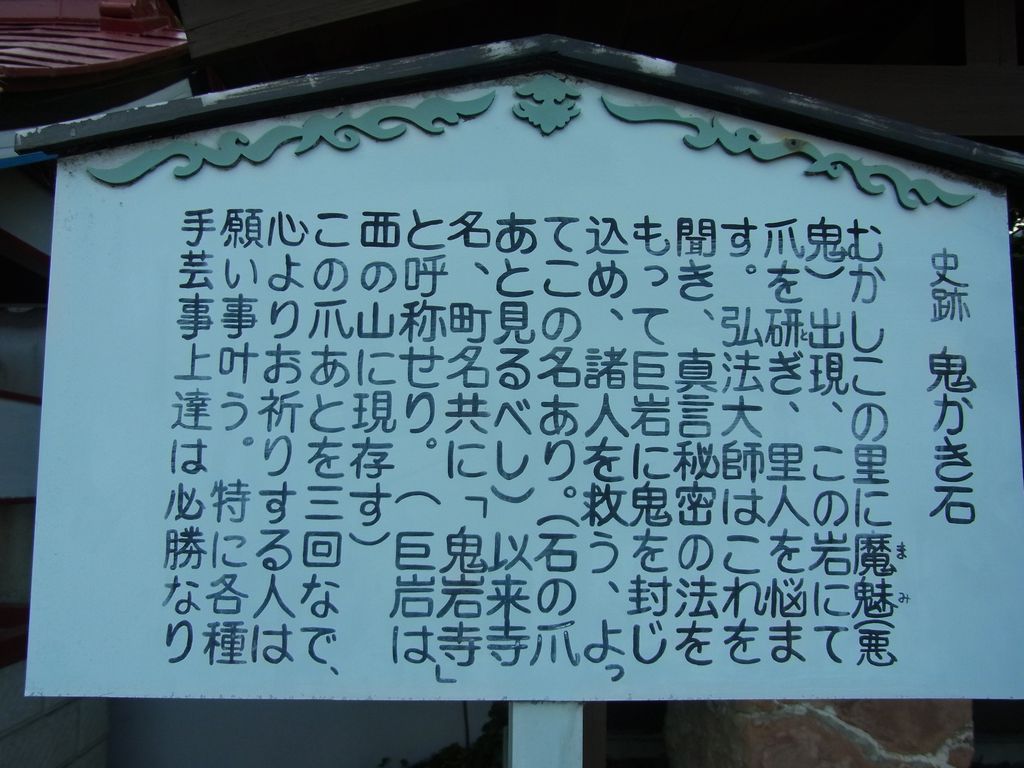 史跡 鬼かき石
むかしこの里に魔魅(悪
まみ
鬼)出現、この岩にて
爪を研ぎ、里人を悩ま
と
す。弘法大師はこれを
聞き、真言秘密の法を
もって巨岩に鬼を封じ
込め、諸人を救う、よっ
てこの名あり。(石の爪
あと見るべし)以来寺
名、町名共に「鬼岩寺」
と呼称せり。(巨岩は
西の山に現存す)
この爪あとを三回なで、
心よりお祈りする人は
願い事叶う。特に各種
手芸事上達は必勝なり